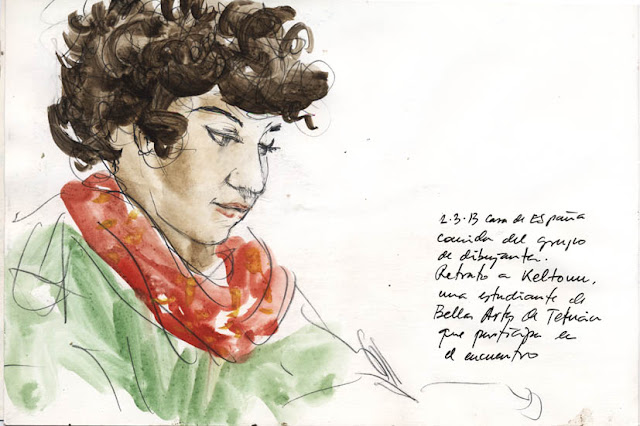 2-3-13 Casa de España
comida del grupo
de dibujantes.
Retrato a Keltoum,
una estudiante de
Bellas Artes de Tetuán
que participa en
el encuentro